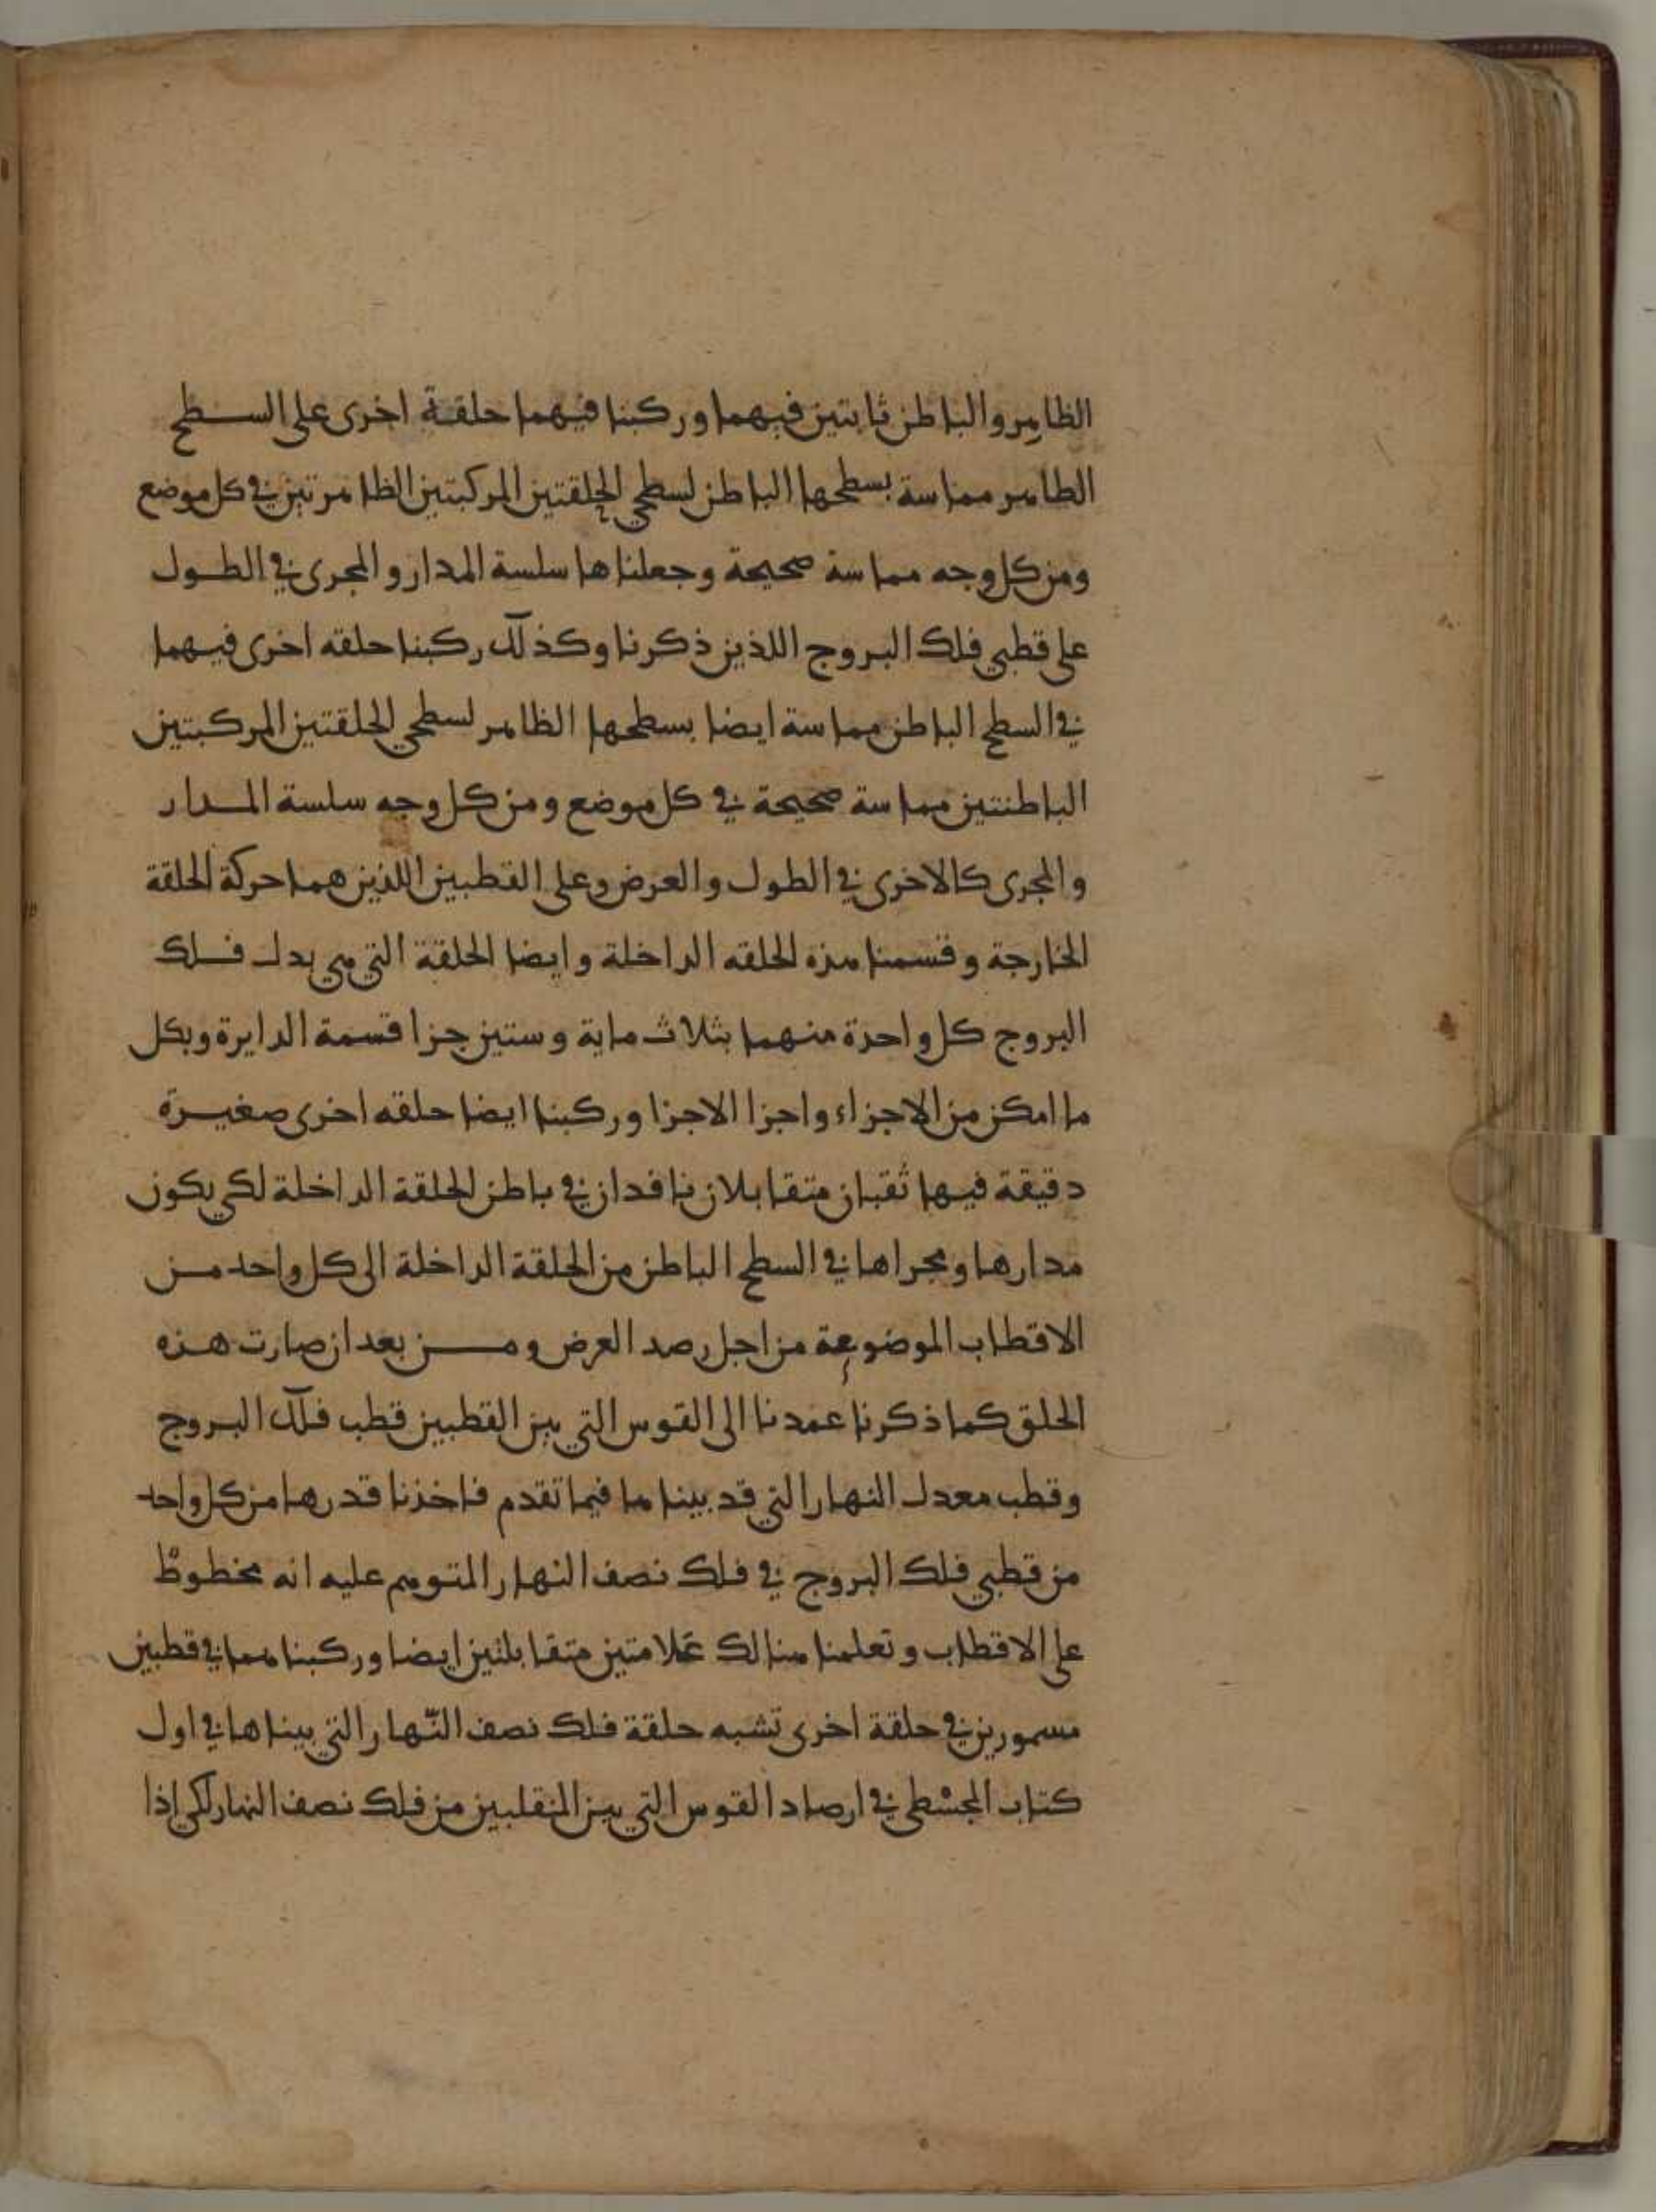 الظاهر والباطن ثابتين فيهما وركبنا فيهما حلقة اخرى على السطح
الظاهر مماسة بسطحها الباطن لسطحي الحلقتين المركبتين الظاهرتين في كل موضع
ومن كل وجه مماسة صحيحة وجعلناها سلسة المدار والمجرى في الطول
على قطبي فلك البروج اللذين ذكرنا وكذلك ركبنا حلقه اخرى فيهما
في السطح الباطن مماسة ايضا بسطحها الظاهر لسطحي الحلقتين المركبتين
الباطنتين مماسة صحيحة في كل موضع ومن كل وجه سلسة المدار
والمجرى كالاخرى في الطول والعرض وعلى القطبين اللذين هما حركة الحلقة
الخارجة وقسمنا هذه الحلقه الداخلة وايضا الحلقة التي هي بدل فلك
البروج كل واحدة منهما بثلاث ماية وستين جزا قسمة الدايرة وبكل
ما امكن من الاجزاء واجزا الاجزا وركبنا ايضا حلقه اخرى صغيرة
دقيقة فيها ثقبان متقابلان نافدان في باطن الحلقة الداخلة لكي يكون
مدارها ومجراها في السطح الباطن من الحلقة الداخلة الى كل واحد من
الاقطاب الموضوعة من اجل رصد العرض ومن بعد ان صارت هذه
الحلق كما ذكرنا عمدنا الى القوس التي بين القطبين قطب فلك البروج
وقطب معدل النهار التي قد بيناها فيما تقدم فاخذنا قدرها من كل واحد
من قطبي فلك البروج في فلك نصف النهار المتوهم عليه انه مخطوط
على الاقطاب وتعلمنا هنالك علامتين متقابلتين ايضا وركبناهما في قطبين
مسمورين في حلقة اخرى تشبه حلقة فلك نصف النّهار التي بيناها في اول
كتاب المجسطي في ارصاد القوس التي بين المنقلبين من فلك نصف النهار لكي اذا